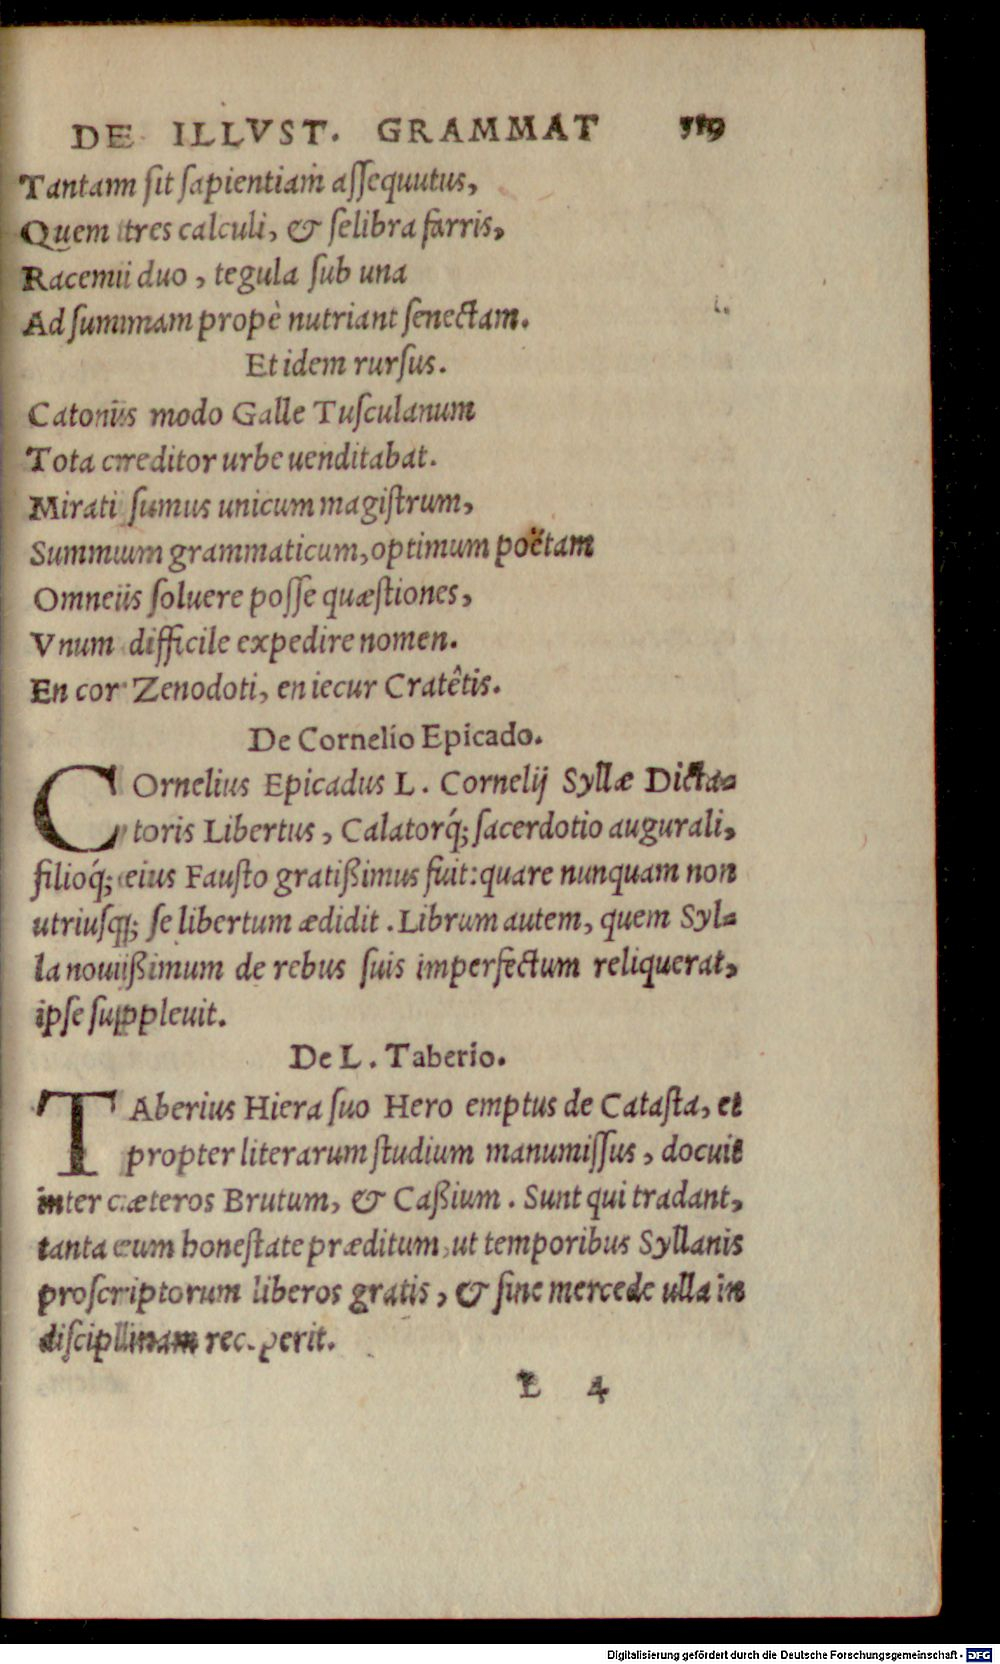 DE ILLVST. GRAMMAT 519
Tantam sit sapientiam assequutus,
Quem tres calculi, & selibra farris,
Racemi duo, tegula sub una
Ad summam propè nutriant senectam.
Et idem rursus.
Catonis modo Galle Tusculanum
Tota creditor urbe uenditabat.
Mirati sumus unicum magistrum,
Summum grammaticum, optimum poëtam
Omneis soluere posse quæstiones,
Vnum difficile expedire nomen.
En cor Zenodoti, en iecur Cratêtis.
De Cornelio Epicado.
COrnelius Epicadus L. Cornelij Syllæ Dicta-
toris Libertus, Calatorq́; sacerdotio augurali,
filioq́; eius Fausto gratißimus fuit: quare nunquam non
utriusq; se libertum ædidit. Librum autem, quem Syl-
la nouißimum de rebus suis imperfectum reliquerat,
ipse suppleuit.
De L. Taberio.
TAberius Hiera suo Hero emptus de Catasta, et
propter literarum studium manumissus, docuit
inter cæteros Brutum, & Caßium. Sunt qui tradant,
tanta eum honestate præditum, ut temporibus Syllanis
proscriptorum liberos gratis, & sine mercede ulla in
disciplinam receperit.
L 4
Digitalisierung gefördert durch die Deutsche Forschungsgemeinschaft - DFG